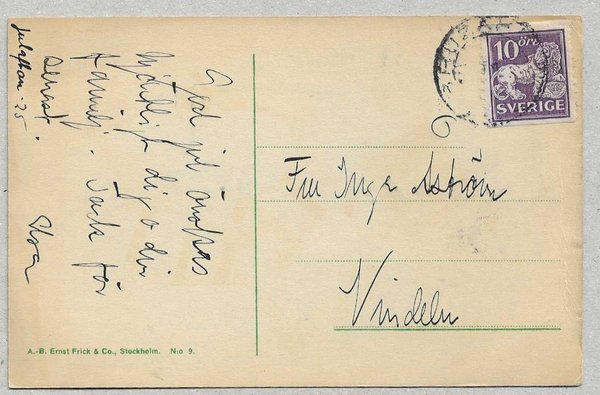 God jul önskas
hjärtligt dig o din
familj. Tack för
senast.
Julafton -25
10 ÖRE
SVERIGE
Fru Inga Åström
Vindeln
A.-B. Ernst Frick & Co., Stockholm. N:o 9.